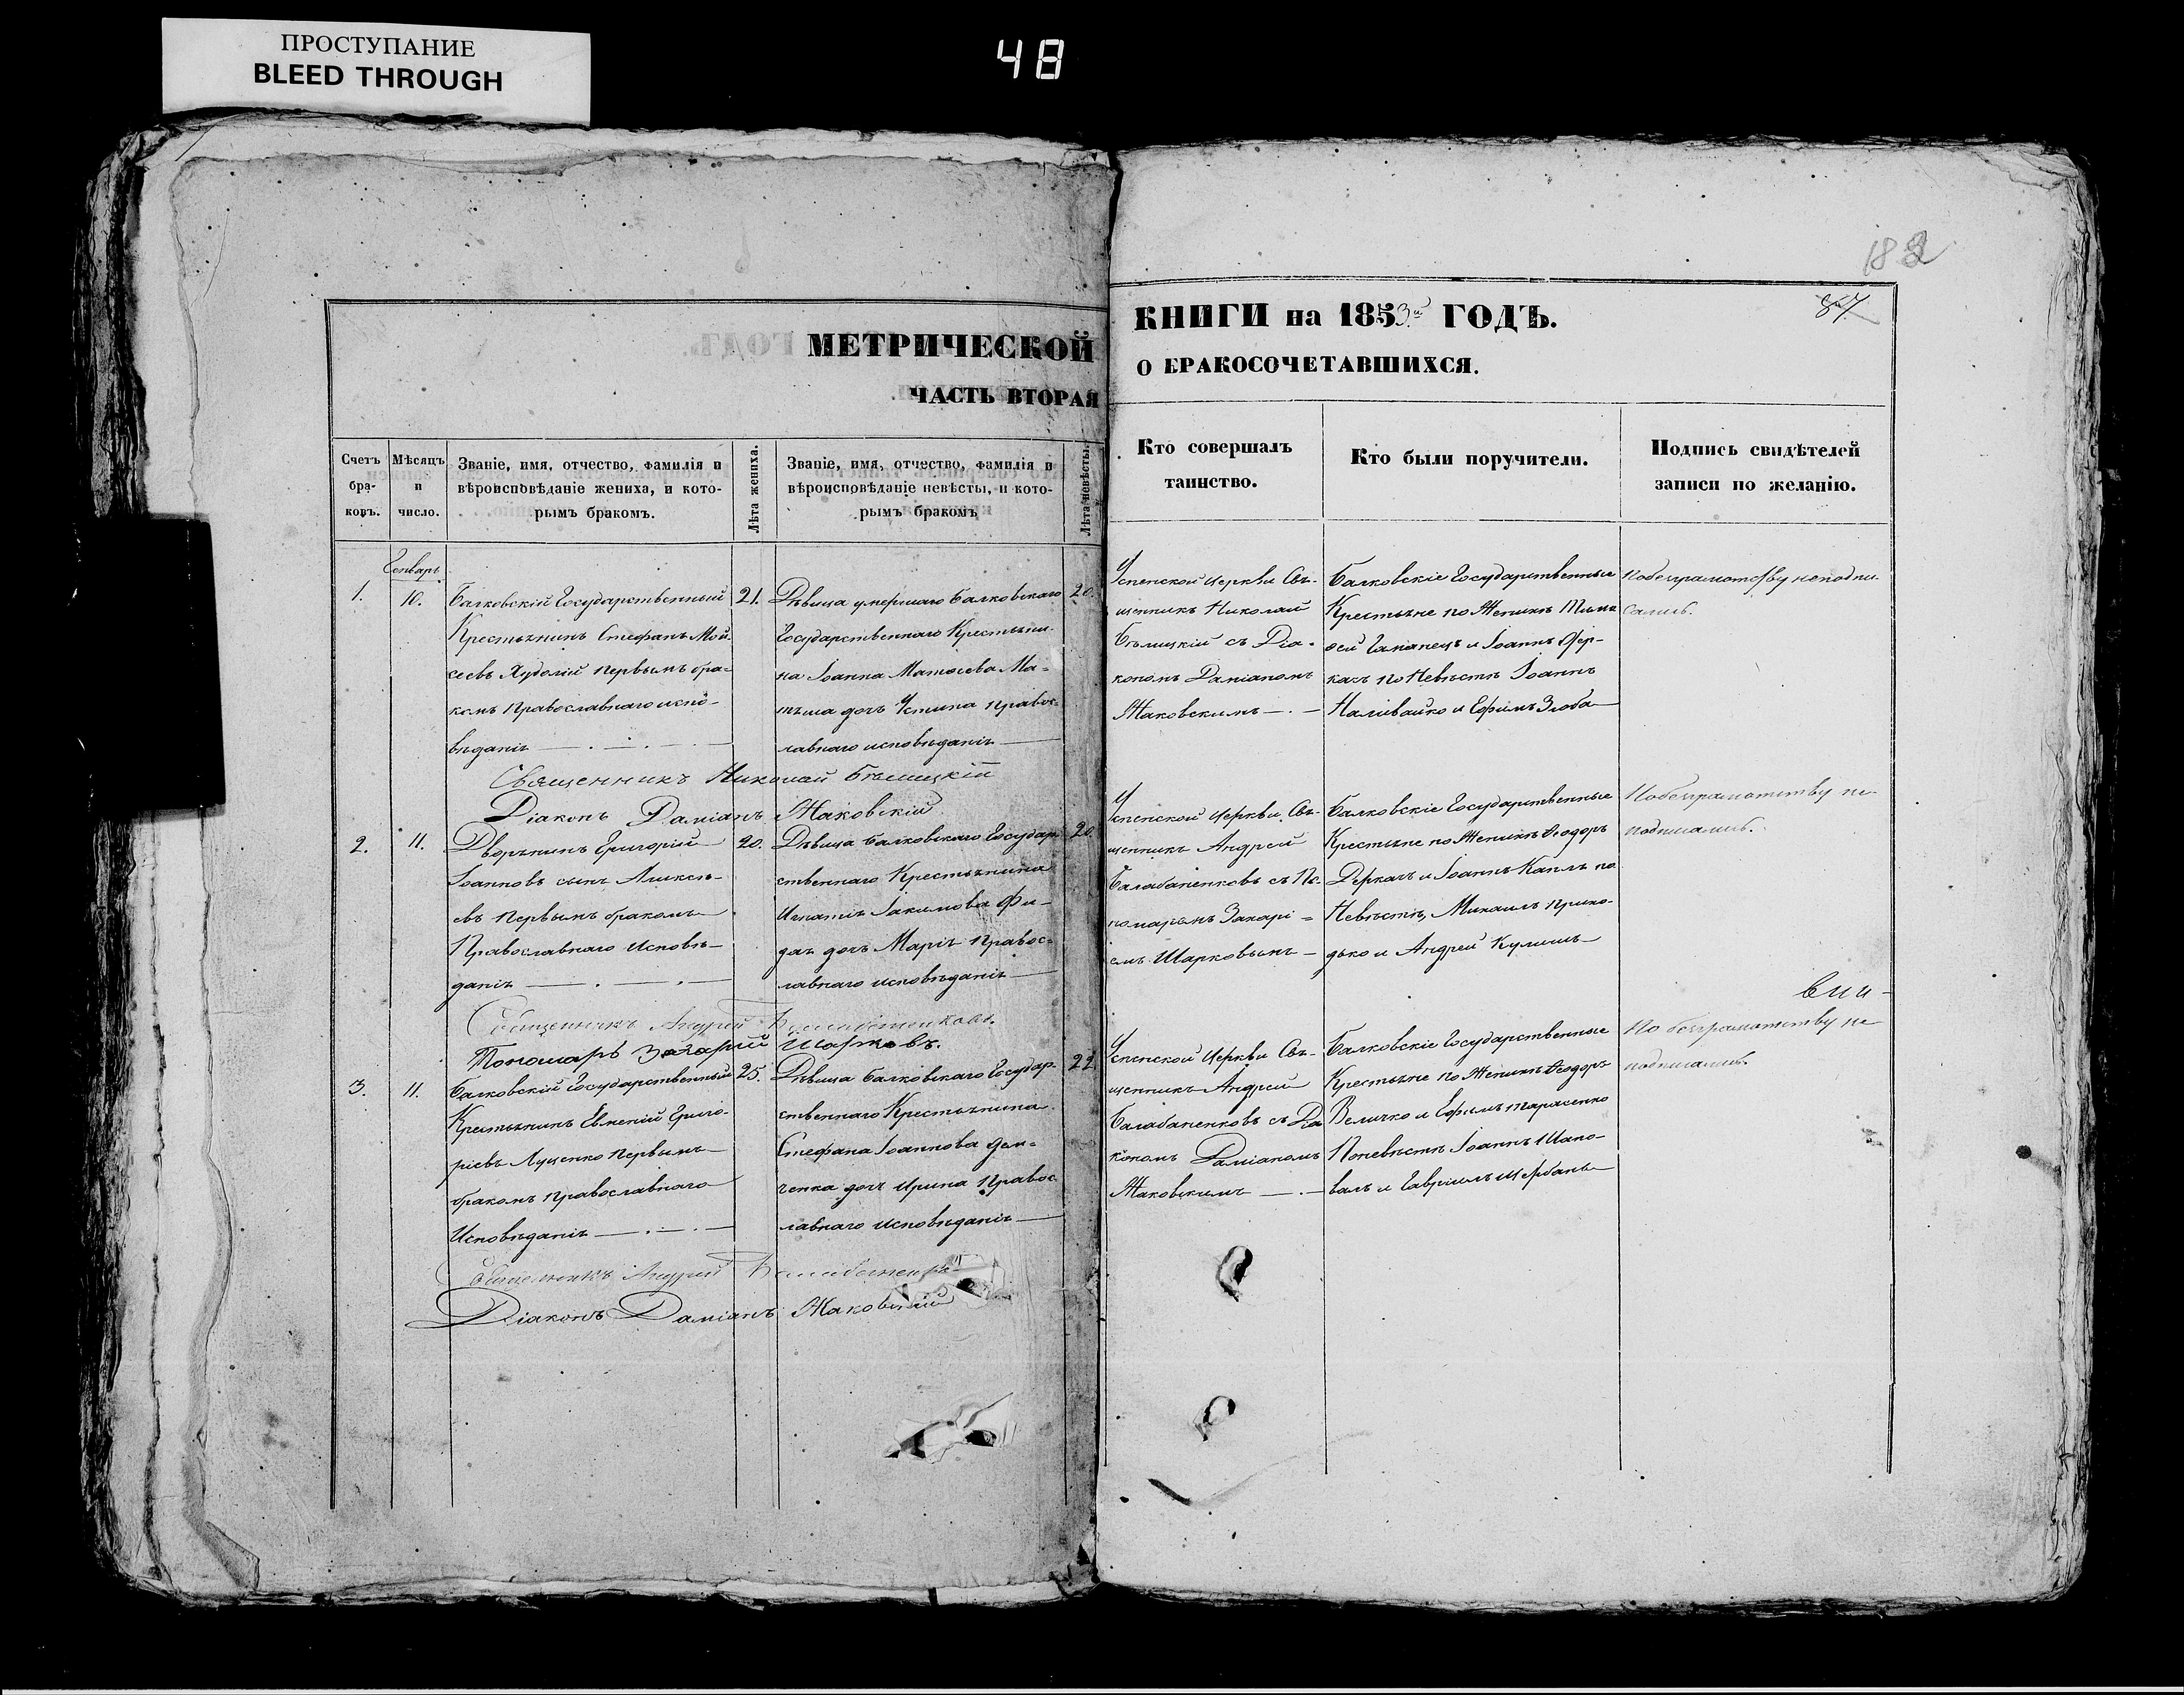 ПРОСТУПАНИЕ
BLEED THROUGH
48
182
87
МЕТРИЧЕСКОЙ
ЧАСТЬ ВТОРАЯ
КНИГИ на 1853й ГОДЪ.
О БРАКОСОЧЕТАВШИХСЯ.
Счетъ бра-ковъ.
Мѣсяцъ и число.
Званіе, имя, отчество, фамилія и
вѣроисповѣданіе жениха, и кото-
рымъ бракомъ.
Лѣта жениха.
Званіе, имя, отчество, фамилія и
вѣроисповѣданіе невѣсты, и кото-
рымъ бракомъ
Лѣта невѣсты.
Кто совершалъ
таинство.
Кто были поручители.
Подпись свидѣтелей
записи по желанію.
Генварь
1.
10.
Балковскій Государственный
Крестьянинъ Стефанъ Мой-
сеевъ Худолій первымъ бра-
комъ Православнаго испо-
вѣданія
21.
Дѣвица умершаго Балковскаго
Государственнаго Крестьяни-
на Іоанна Матѳіева Ма-
дочь Устина Правос-
лавнаго исповѣданія
20.
Успенской Церкви Свя-
щенникъ Николай
Бѣлицкій съ Діа-
кономъ Даміаномъ
Жаковскимъ
Балковскіе Государственные
Крестьяне по Женихѣ Тимо
ѳей Гапанецъ и Іоаннъ
по Невѣстѣ Іоаннъ
Наливайко и Ефимъ Злоба
По безграмотству неподпи-
сались.
Священникъ Николай Бѣлицкій
Діаконъ Даміанъ Жаковскій
2.
11.
Дворянинъ Григорій
Іоанновъ сынъ Алексѣ-
евъ первымъ бракомъ
Православнаго Исповѣ-
данія
20.
Дѣвица Балковскаго Государ-
ственнаго Крестьянина
Игнатія Іакимова
дочь Марія Правос-
лавнаго исповѣданія
20.
Успенской Церкви Свя-
щенникъ Андрей
Балабаненковъ съ По-
номаремъ Захарі-
емъ Шарковымъ
Балковскіе Государственные
Крестьяне по Женихѣ Ѳеодоръ
Деркачъ и Іоаннъ Капль по
Невѣстѣ, Михаилъ Прихо-
дько и Андрей Кулишъ
По безграмотству не-
подписались.
Священникъ Андрей Балабаненковъ.
Пономарь Захарій Шарковъ.
3.
11.
Балковскій Государственный
Крестьянинъ Евменій Григо-
ріевъ Луценко первымъ
бракомъ Православнаго
Исповѣданія
25.
Дѣвица Балковскаго Государ-
ственнаго Крестьянина
Стефана Іоаннова Дем-
ченка дочь Ирина Правос
лавнаго исповѣданія
22.
Успенской Церкви Свя-
щенникъ Андрей
Балабаненковъ съ Діа
кономъ Даміаномъ
Жаковскимъ
Балковскіе Государственные
Крестьяне по Женихѣ Ѳеодоръ
Величко и Ефимъ Тарасенко
По невѣстѣ Іоаннъ Шапо-
валъ и Гавріилъ Щербань
По безграмотству не
подписались.
Священникъ Андрей Балабаненковъ
Діаконъ Даміанъ Жаковскій